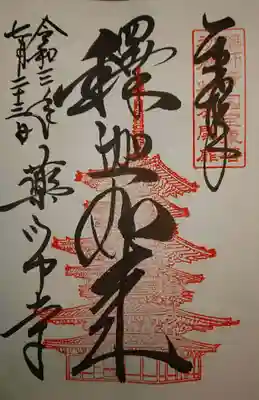 奉拝
釋迦如来
薬師寺
令和二年
七月二十三日